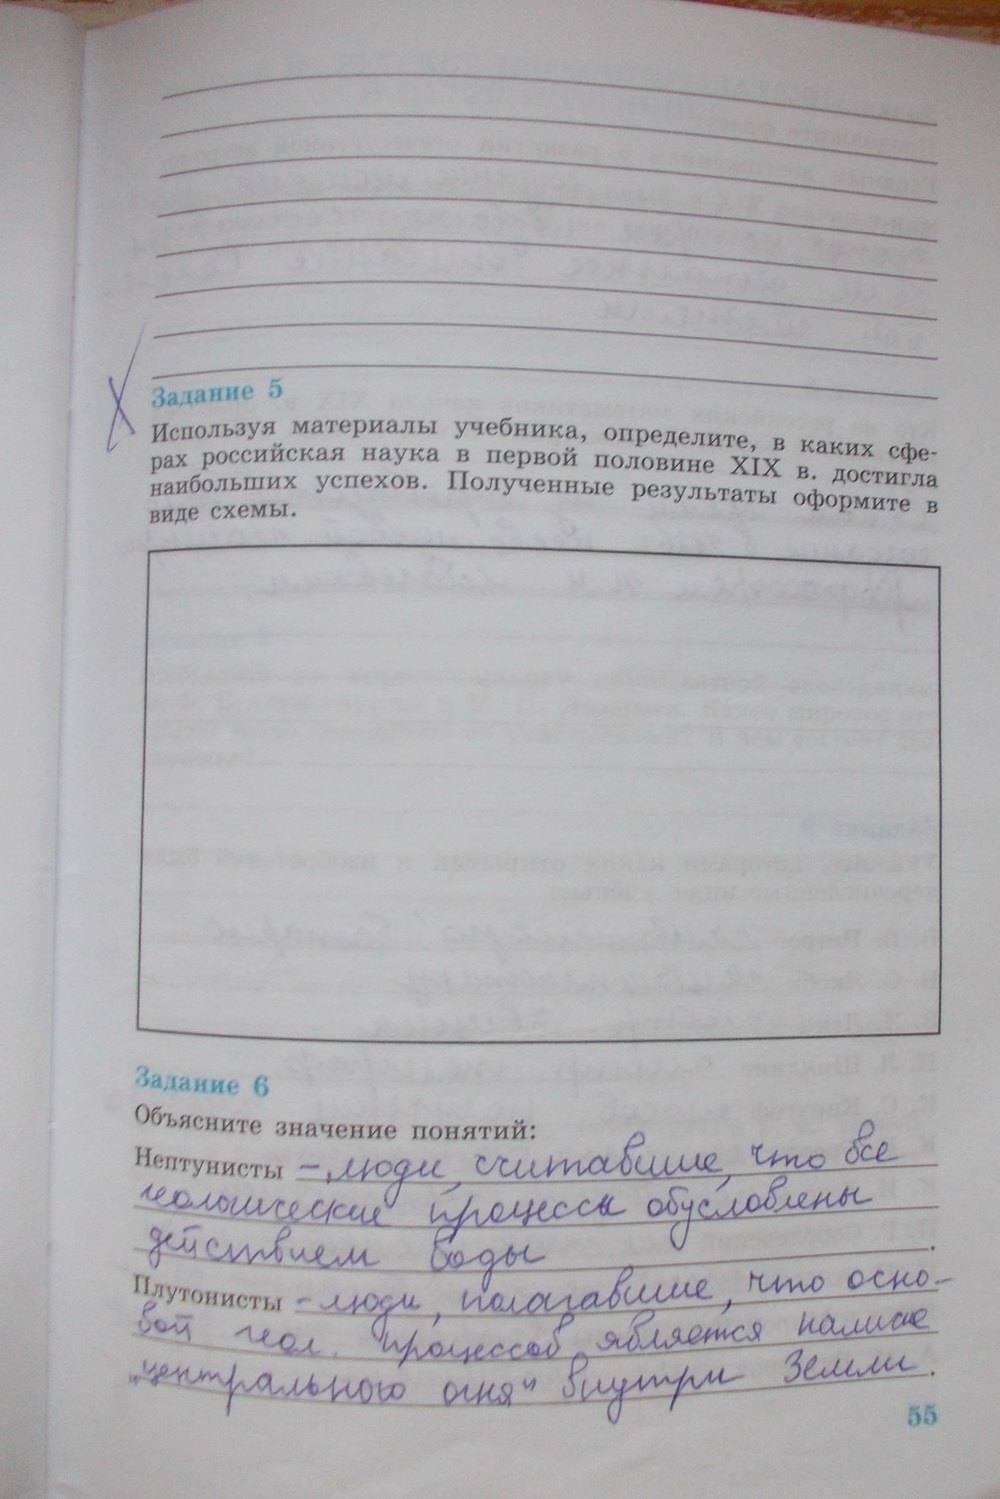 Задание 5
Используя материалы учебника, определите, в каких сфе-
рах российская наука в первой половине XIX в. достигла
наибольших успехов. Полученные результаты оформите в
виде схемы.
Задание 6
Объясните значение понятий:
Нептунисты – люди, считавшие, что все
геологические процессы обусловлены
действием воды.
Плутонисты – люди, полагавшие, что осно-
вой геол. процессов является наличие
„центрального огня" внутри Земли.
55